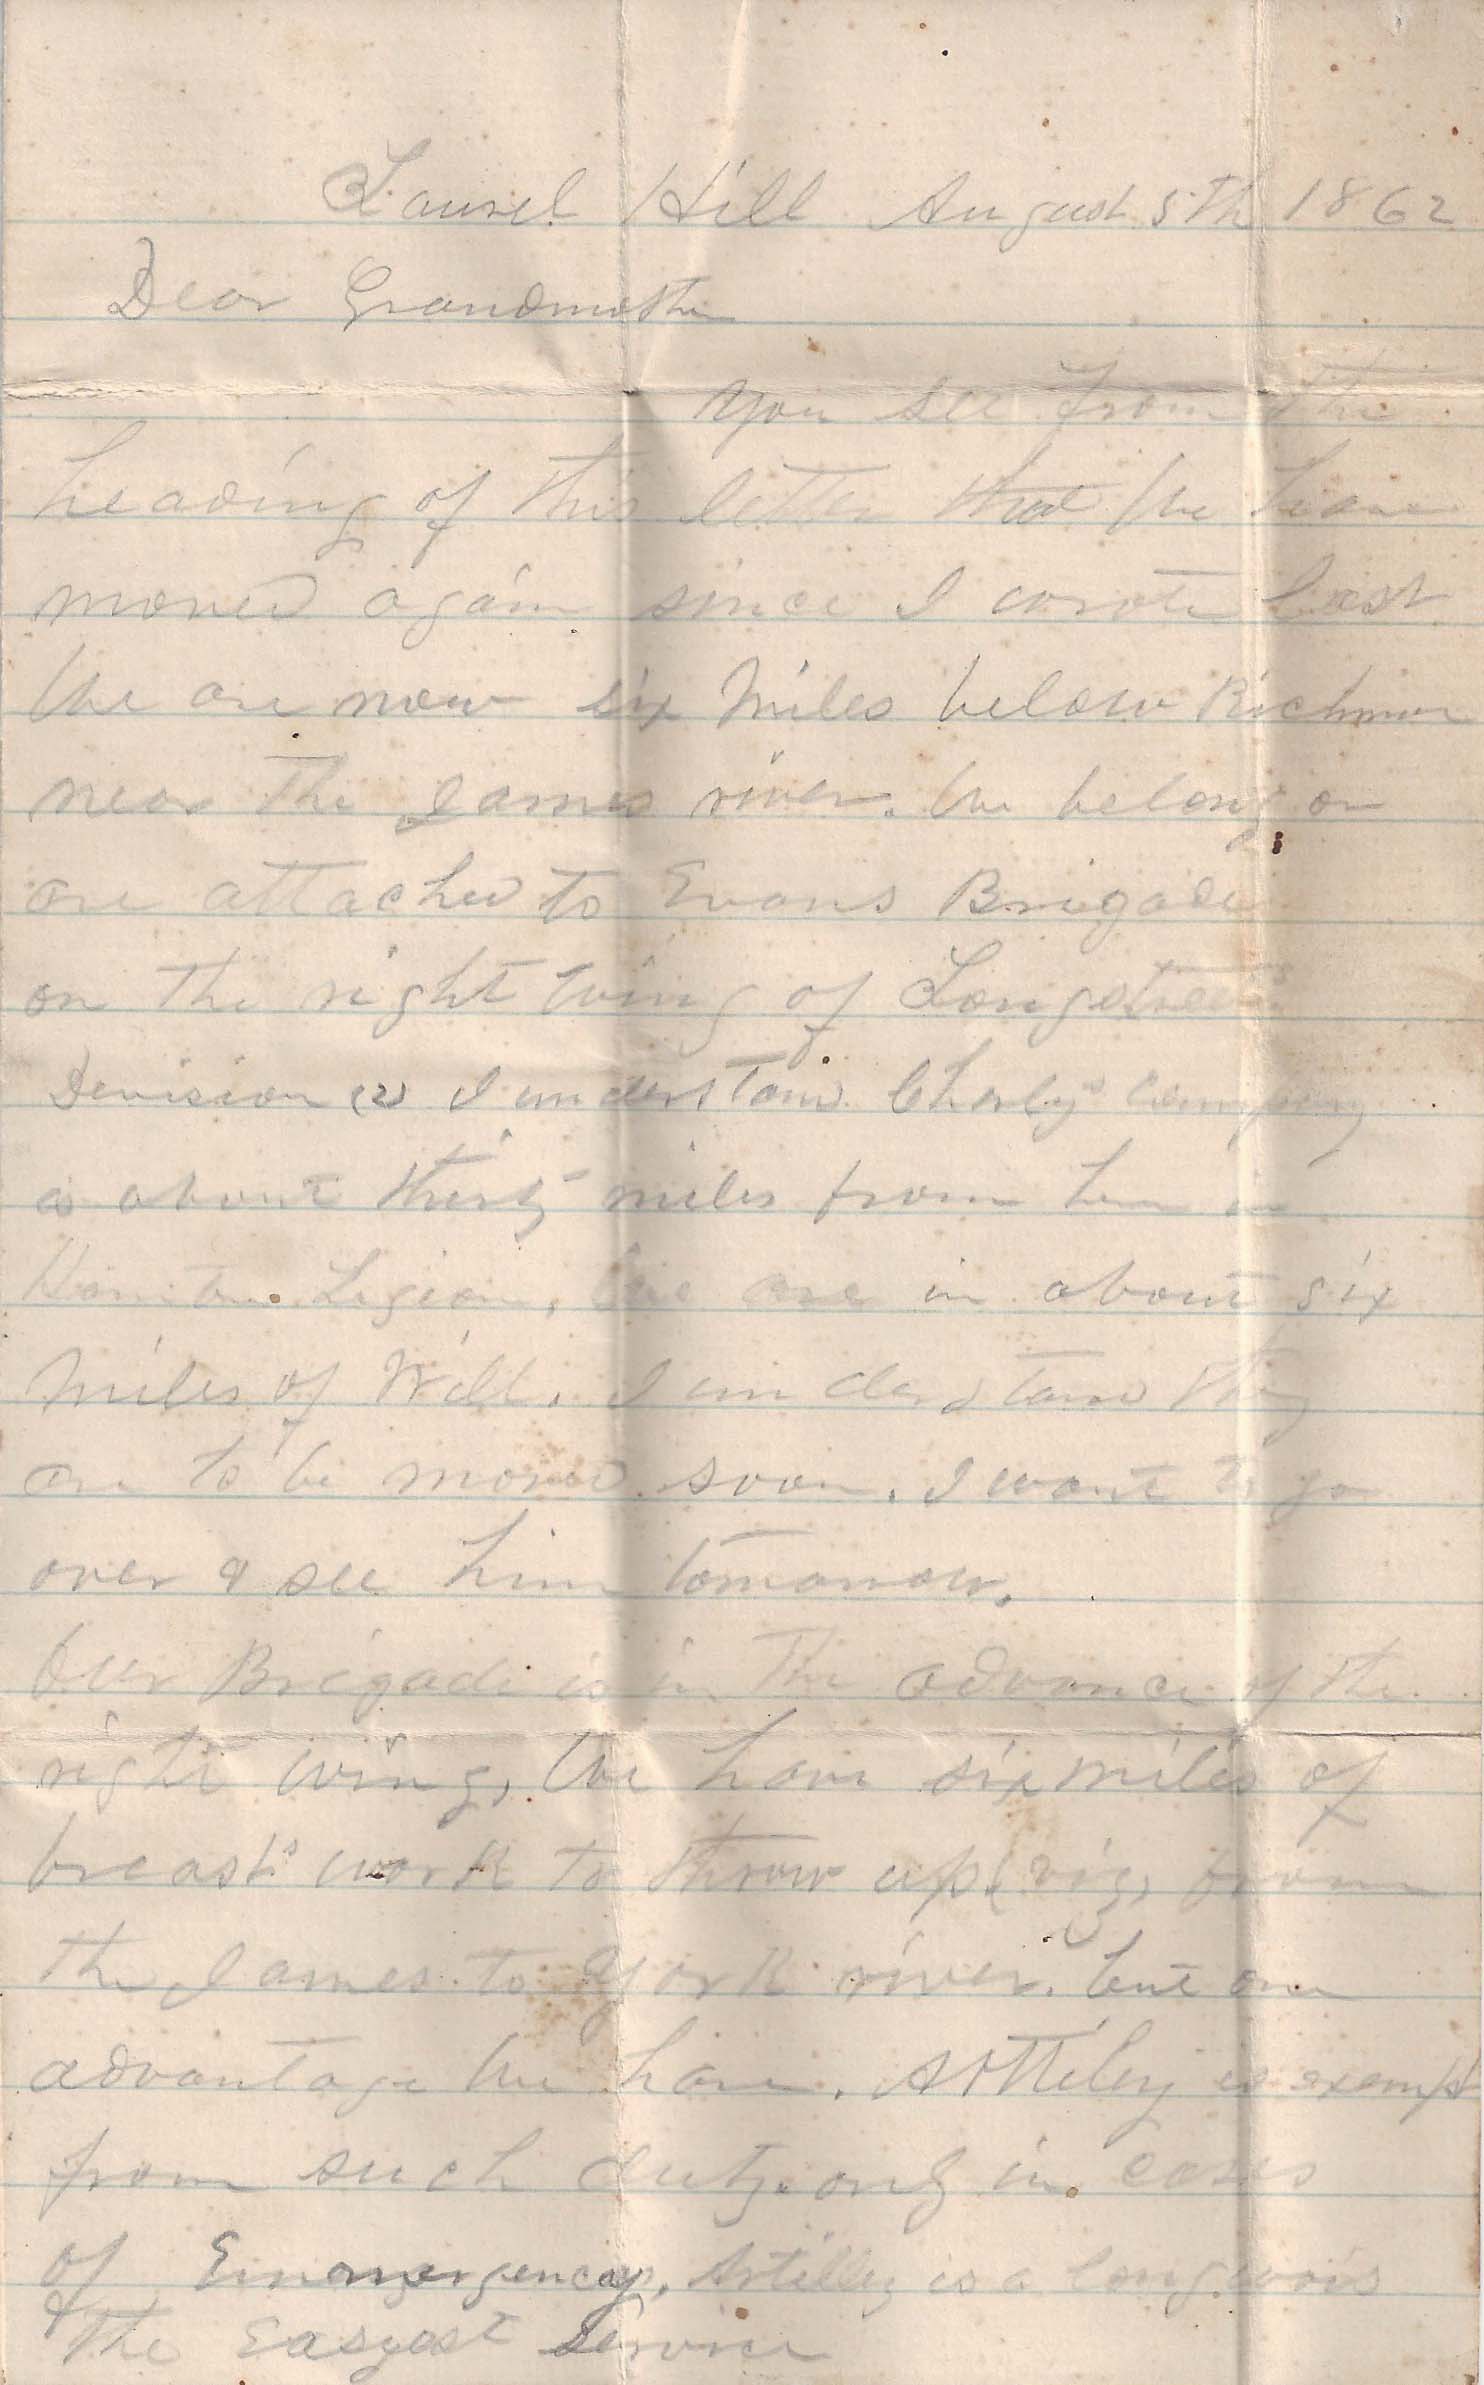 Laurel Hill August 5th 1862
Dear Grandmother
You see from the
heading of this letter that We have
moved again since I wrote last
We are now six Miles below Richmon
near the James river. We belong or
are attached to Evans Brigade
on the right Wing of Longstreets
Devision (2) I understand Charly's company
is about thirty miles from here in
Hampton Legion, We are in about six
Miles of Will. I understand they
are to be moved soon. I want to go
over & see him tomorrow.
Our Brigade is in The advance of the
right wing, We have six miles of
breast's work to throw up (viz, from
the James to York river. but one
advantage We have. Artillery is exempt
from such duty. only in cases
of Emmergency, Artillery is a long
The Easyest Service